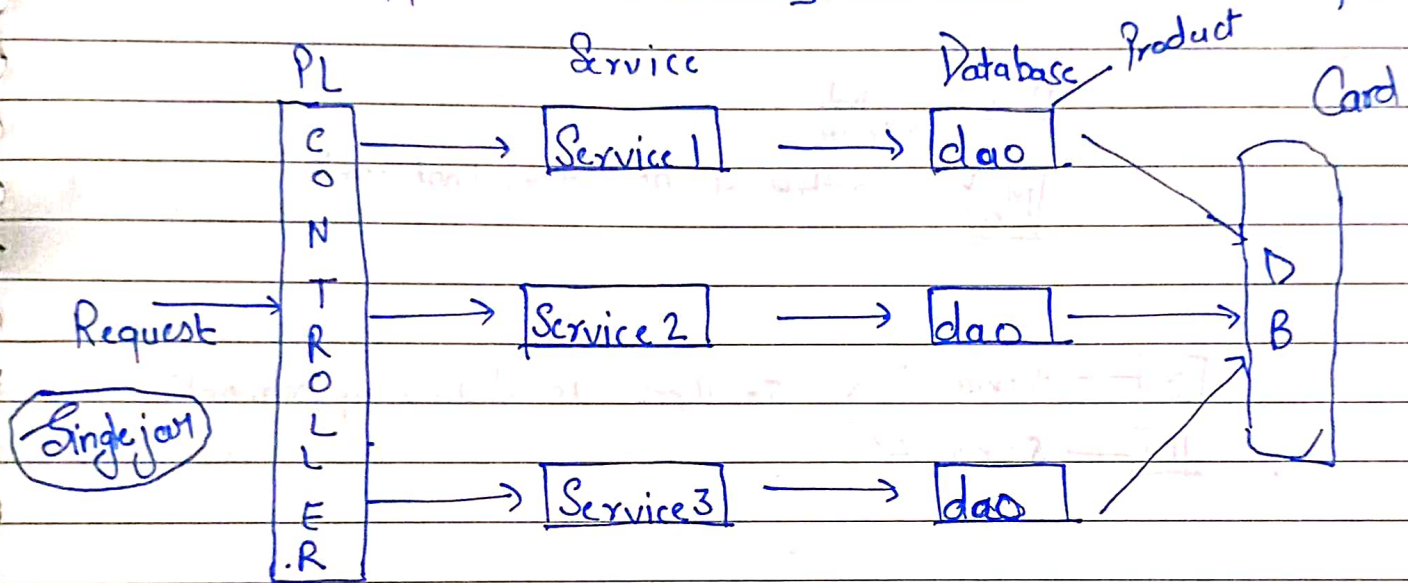 PL
Service
Database
Product
Card
CONTROLLER
Service 1
dao
Request
Service 2
dao
DB
Single jar
Service 3
dao